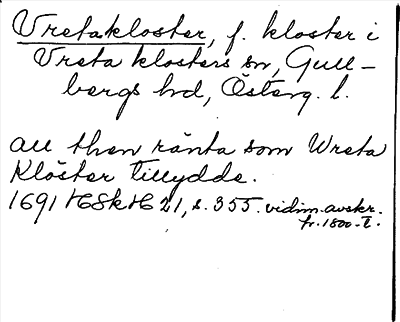 Vretakloster, f. kloster i
Vreta klosters sn, Gull-
bergs hd, Österg. l.
all then ränta som Wreta
Klöster tillydde.
1691 HSkH 21, s. 355. vidim. avskr.
fr. 1800-t.